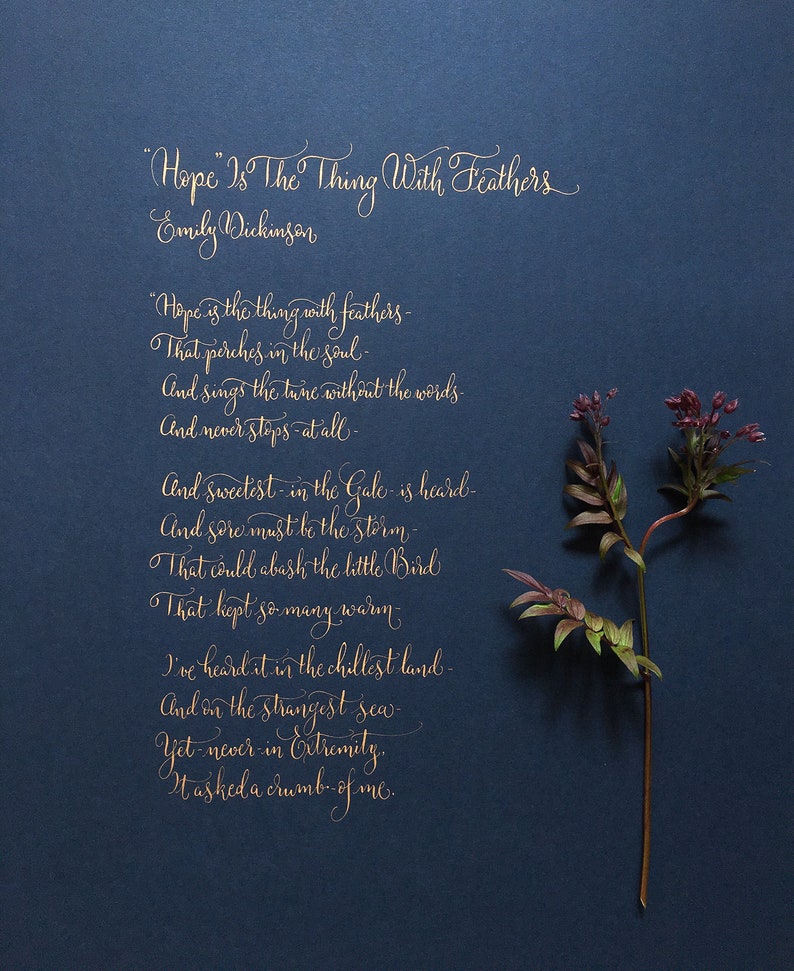 “Hope” Is The Thing With Feathers
Emily Dickinson
“Hope is the thing with feathers-
That perches in the soul-
And sings the tune without the words-
And never stops-at all-
And sweetest-in the Gale-is heard-
And sore must be the storm-
That could abash the little Bird
That kept so many warm-
I've heard it in the chillest land-
And on the strangest sea-
Yet-never-in Extremity,
It asked a crumb-of me.